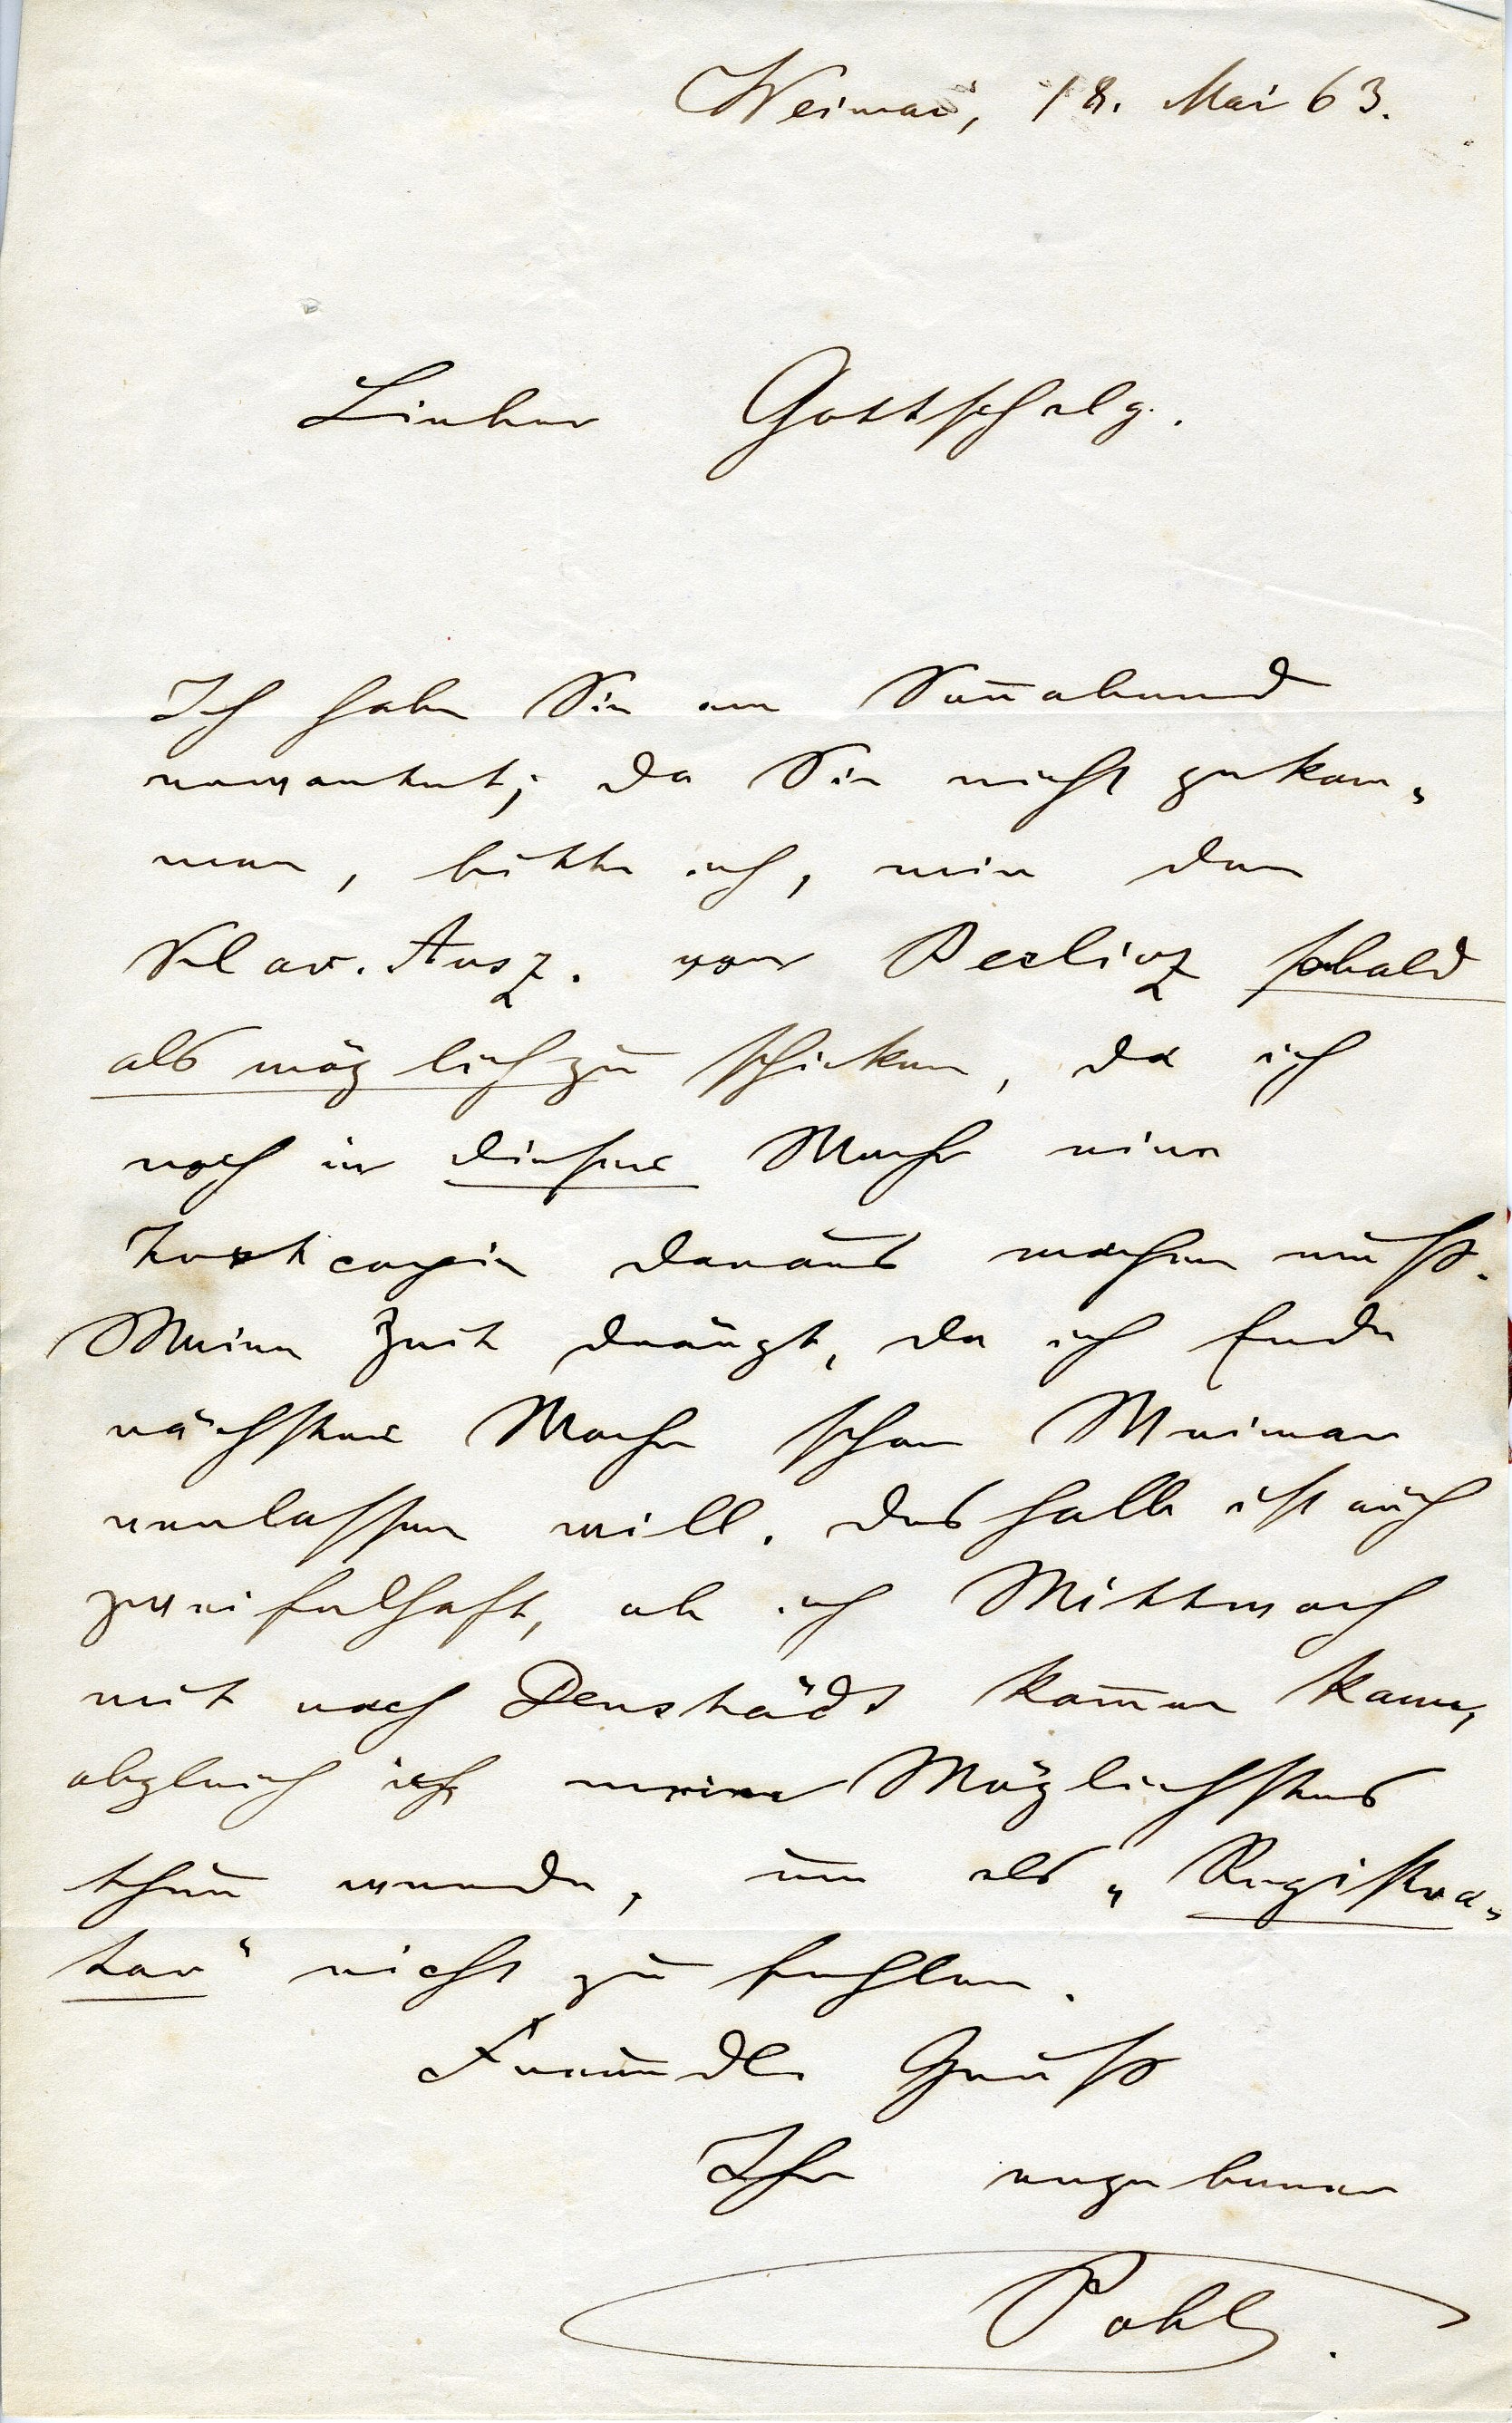 Weimar, 18. Mai 63.
Lieber Gottschalg.
Ich habe Sie am Sonnabend
erwartet; da Sie nicht gekom„
men, bitte ich, mir den
Clav. Ausz. von Berlioz sobald
als möglich zu schicken, da ich
noch in dieser Woche eine
Textcopie daraus machen muß.
Meine Zeit drängt, da ich Ende
nächster Woche schon Weimar
verlassen will. Deshalb ist auch
zweifelhaft, ob ich Mittwoch
mit nach Denstädt kommen kann,
obgleich ich mein Möglichstes
thun werde, um als „Registra„
tor“ nicht zu fehlen.
Freundl. Gruß
Ihr ergebener
Pohl.